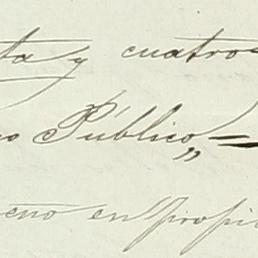 ta y cuatro
o Público„=
eno en propi